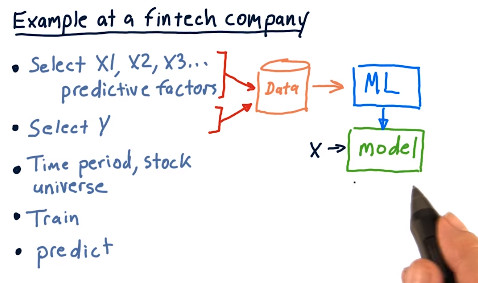 Example at a fintech company
• Select X1, X2, X3...
predictive factors
• Select Y
• Time period, stock
universe
• Train
• predict
Data
ML
X
model